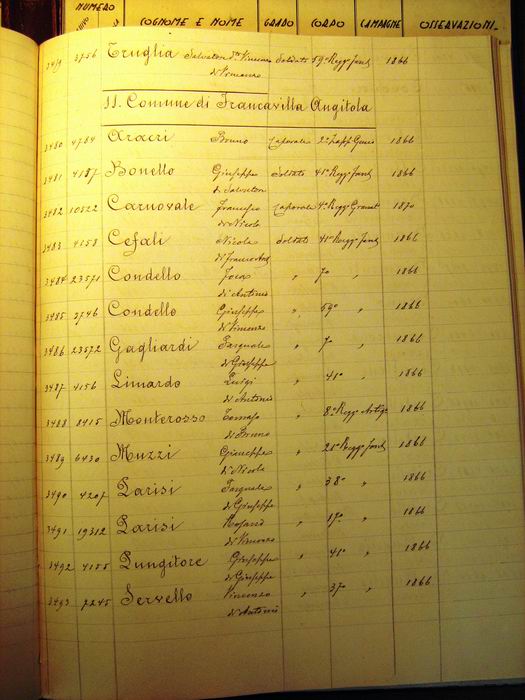 NUMERO
COGNOME E NOME GRADO CORPO CAMPAGNE OSSERVAZIONI.
3479 3756 Truglia Salvatore Soldato 59° Regg. Fant. 1866
di Vincenzo
11. Comune di Francavilla Angitola
3480 4784 Aracri Bruno Caporale 2° Zapp. Genio 1866
3481 4187 Bonello Giuseppe Soldato 41° Regg. Fant. 1866
di Salvatore
3482 10522 Carnovale Francesco Caporale 4° Regg. Granat. 1870
di Nicola
3483 4158 Cefalì Nicola Soldato 41° Regg. Fant. 1866
di Francesco
3484 23571 Condello Foca " 7° " 1866
di Antonio
3485 3746 Condello Giuseppe " 59° " 1866
di Vincenzo
3486 23572 Gagliardi Pasquale " 7° " 1866
di Giuseppe
3487 4156 Limardo Luigi " 41° " 1866
di Antonio
3488 8415 Monterosso Tomaso " 8° Regg. Artigl. 1866
di Bruno
3489 6430 Muzzi Giuseppe " 28° Regg. Fant. 1866
di Nicola
3490 4207 Parisi Pasquale " 38° " 1866
di Giuseppe
3491 19312 Parisi Rosario " 17° " 1866
di Vincenzo
3492 4155 Pungitore Giuseppe " 41° " 1866
di Giuseppe
3493 7245 Servello Vincenzo " 37° " 1866
di Antonio